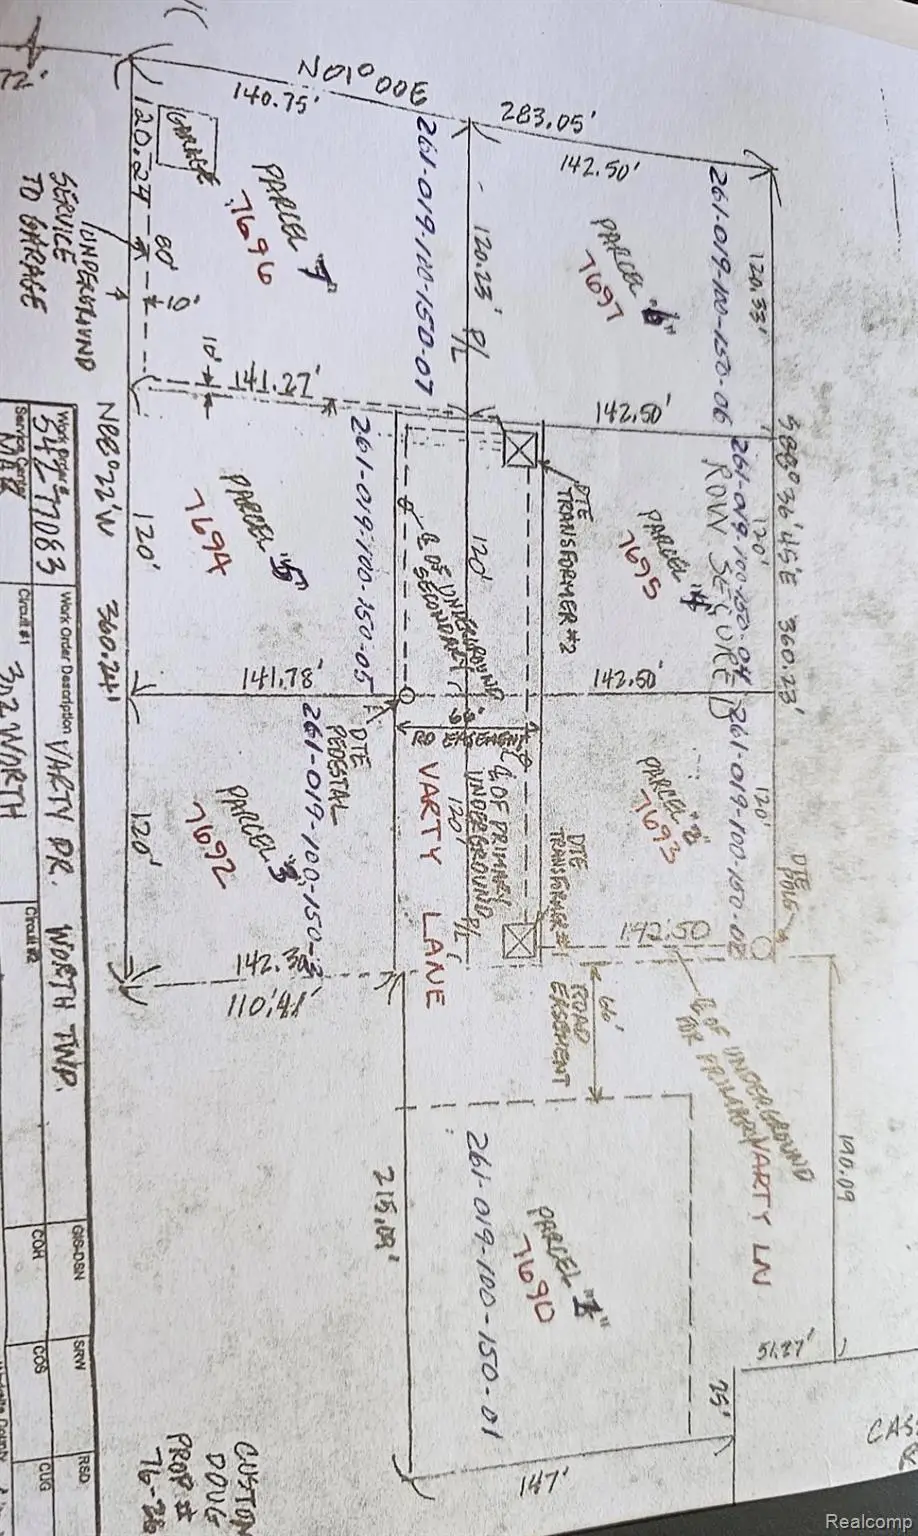 N01°00'E
140.75'
283.05'
142.50'
72'
120.27
GARAGE
PARCEL "7"
7696
261-019-100-150-07
120.23'
P/L
PARCEL "6"
7697
261-019-100-150-06
120.33'
UNDERGROUND
SERVICE
TO GARAGE
80'
10'
10'
141.27'
142.50'
N88°22'W 360.24'
120'
PARCEL "5"
7694
261-019-100-150-05
℄ OF UNDERGROUND
SECONDARY
120'
DTE
TRANSFORMER #2
PARCEL "4"
7695
261-019-100-150-04
ROW SECURED
120'
S88°36'45"E 360.23'
141.78'
142.50'
DTE
PEDESTAL
66'
RD EASEMENT
120'
PARCEL "3"
7692
261-019-100-150-3
VARTY LANE
℄ OF PRIMARY
UNDERGROUND
120'
P/L
DTE
TRANSFORMER #1
PARCEL "2"
7693
261-019-100-150-02
120'
DTE
142.50
110.41'
66'
ROAD
EASEMENT
℄ OF UNDERGROUND
FOR PRIMARY
VARTY LN
190.09
215.09'
261-019-100-150-01
PARCEL "1"
7690
51.27'
25'
147'
Work Order #
Service Center
Work Order Description
VARTY DR. WORTH TWP.
Circuit #1
WORTH
Circuit #2
GIS-DSN
SRW
RSD
COH
COS
CUG
CUSTOM
DOUG
PROP #
CAS
Realcomp